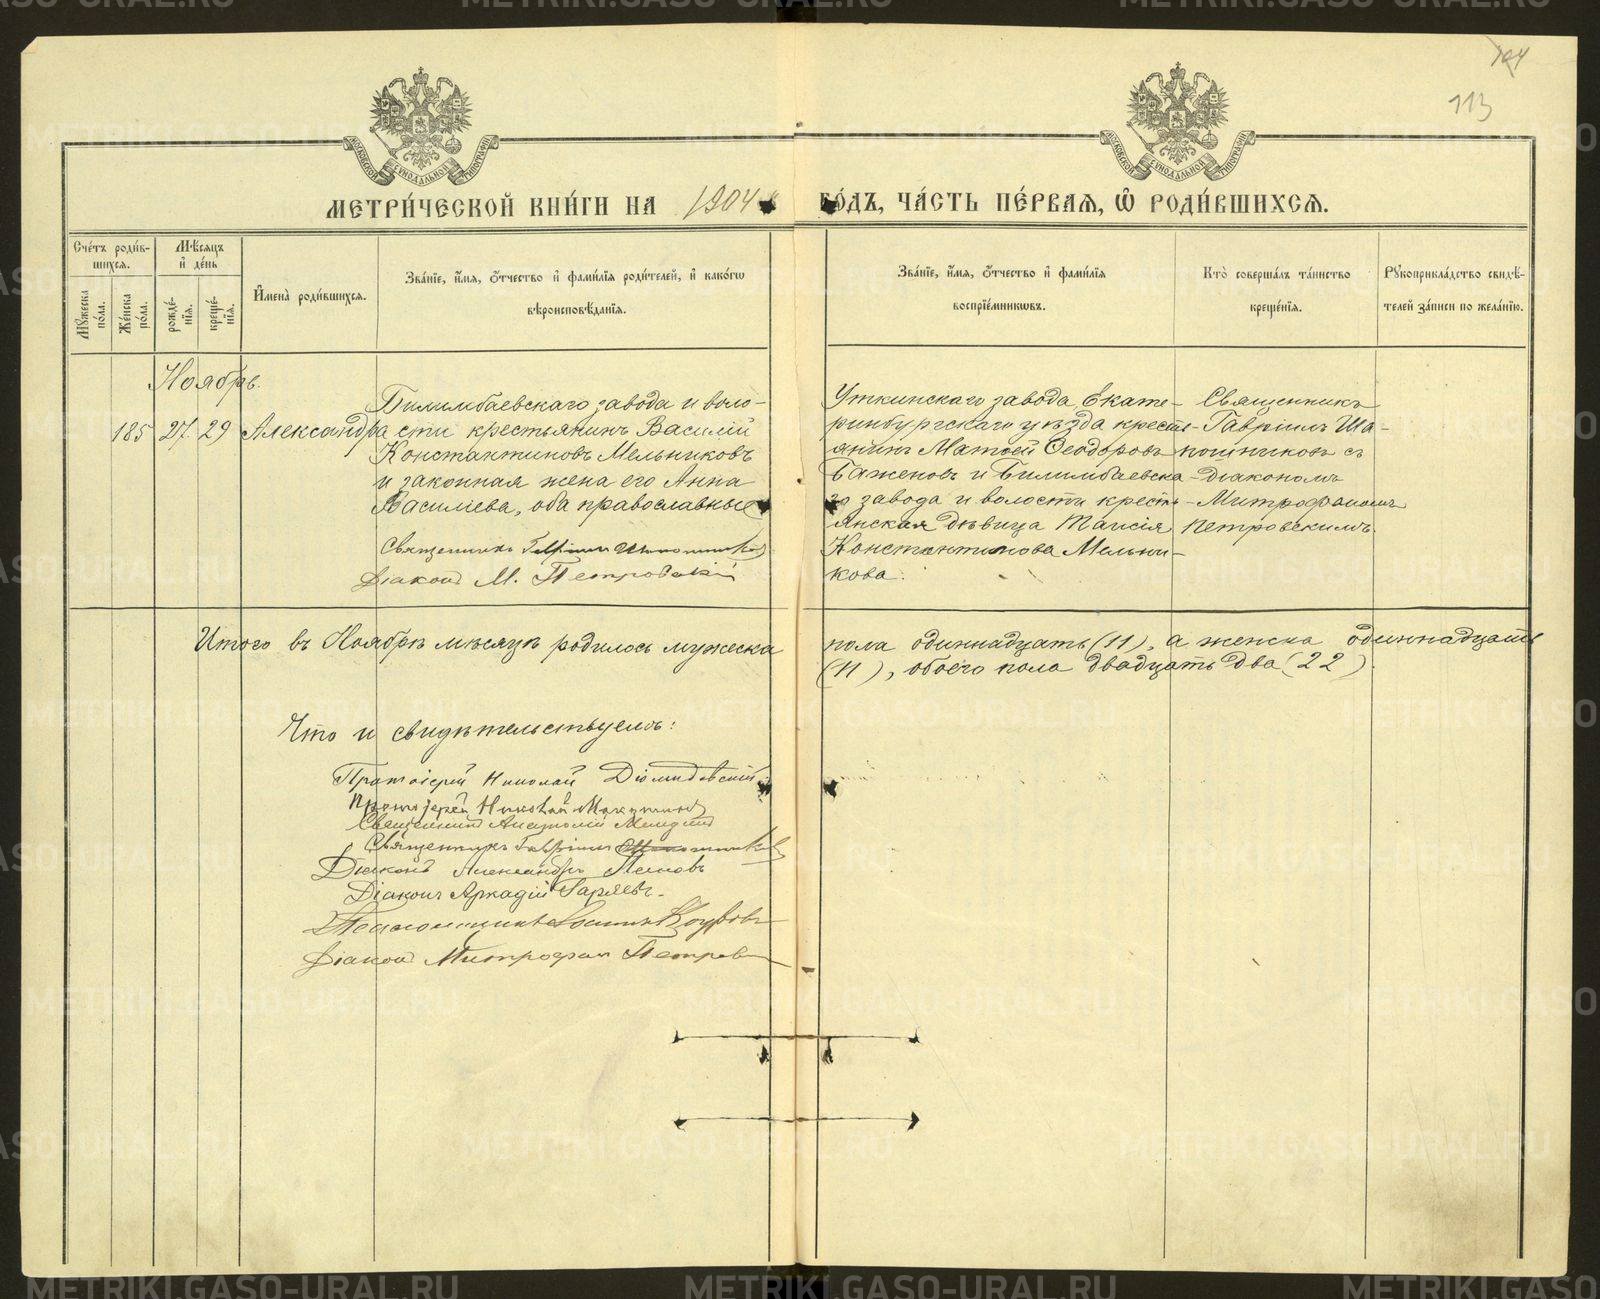 113
МЕТРИ́ЧЕСКОЙ КНИ́ГИ НА 1904 ГО́ДЪ, ЧА́СТЬ ПЕ́РВАЯ, Ѡ РОДИ́ВШИХСЯ.
Сче́тъ роди́в-
шихся.
Мѣ́сяцъ
и҆ де́нь
Мꙋ́жеска
по́ла.
Же́нска
по́ла.
рожде́-
нїя.
креще́-
нїя.
И҆мена̀ роди́вшихся.
Зва́нїе, и҆́мя, ѻ҆́тчество и҆ фами́лїя роди́телей, и҆ како́гѡ
вѣроисповѣ́данїя.
Зва́нїе, и҆́мя, ѻ҆́тчество и҆ фами́лїя
воспрїе́мниковъ.
Кто̀ соверша́лъ та́инство
креще́нїя.
Рꙋкоприкла́дство свидѣ́-
телей за́писи по жела́нїю.
Ноябрь.
185 27 29 Александра
Билимбаевскаго завода и воло-
сти крестьянинъ Василій
Константиновъ Мельниковъ
и законная жена его Анна
Василіева, оба православные
Священникъ Гавріилъ Шапошниковъ
Діаконъ М. Петровскій
Уткинскаго завода, Екате-
ринбургскаго уѣзда крестья-
янинъ Матѳей Ѳеодоровъ
Баженовъ и Билимбаевска-
го завода и волости кресть-
янская дѣвица Таисія
Константинова Мельни-
кова.
Священникъ
Гавріилъ Ша-
пошниковъ съ
діакономъ
Митрофаномъ
Петровскимъ.
Итого въ Ноябрѣ мѣсяцѣ родилось мужеска пола одиннадцать (11), а женска одиннадцать
(11), обоего пола двадцать два (22).
Что и свидѣтельствуемъ:
Протоіерей Николай Діомидовскій
Протоіерей Николай
Священникъ Анатолій
Священникъ Гавріилъ Шапошниковъ
Діаконъ Александръ Поповъ
Діаконъ Аркадій Гаряевъ.
Псаломщикъ
Діаконъ Митрофан Петровскій
METRIKI.GASO-URAL.RU